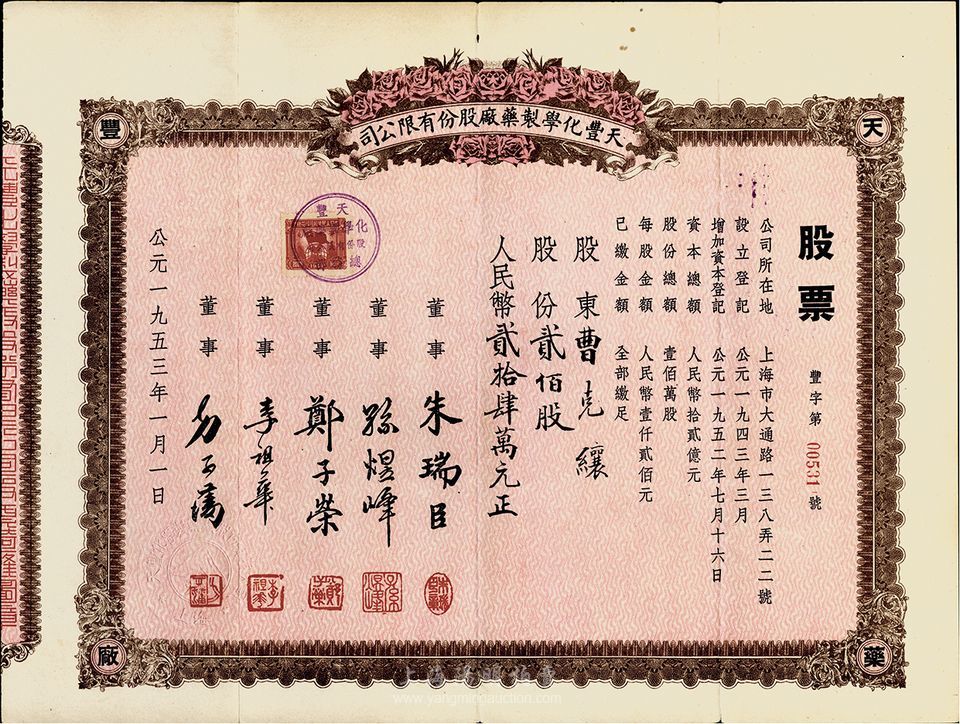 天豐化學製藥廠股份有限公司
天
豐
藥
廠
股票
豐字第00531號
公司所在地 上海市大通路一三八弄二二號
設立登記 公元一九四三年三月
增加資本登記 公元一九五二年七月十六日
資本總額 人民幣拾貳億元
股份總額 壹佰萬股
每股金額 人民幣壹仟貳佰元
已繳金額 全部繳足
股東曹克纕
股份貳佰股
人民幣貳拾肆萬元正
董事 朱瑞臣
董事 孫煜峰
董事 鄭子榮
董事 李祖華
董事
公元一九五三年一月一日
www.yangmingauction.com